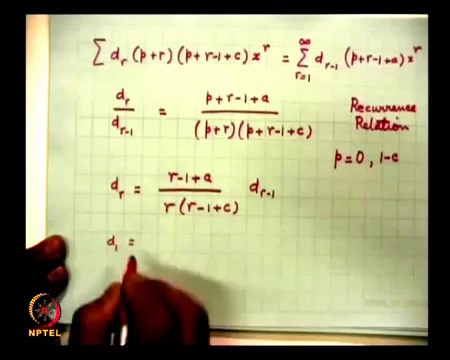 ∑ d_r (p+r) (p+r-1+c) x^r = ∑_{r=1}^{∞} d_{r-1} (p+r-1+a) x^r
d_r / d_{r-1} = (p+r-1+a) / ((p+r)(p+r-1+c))
Recurrence
Relation
p=0, 1-c
d_r = (r-1+a) / (r(r-1+c)) d_{r-1}
d_1 =
NPTEL